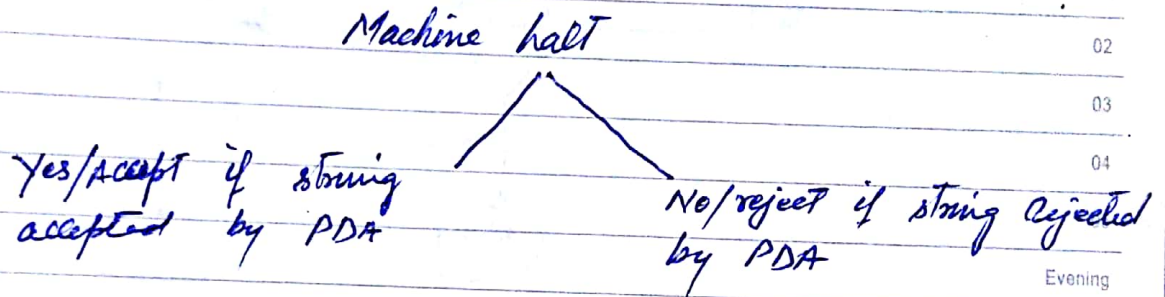 Machine halt
02
03
04
Yes/Accept if string
accepted by PDA
No/reject if string Rejected
by PDA
Evening